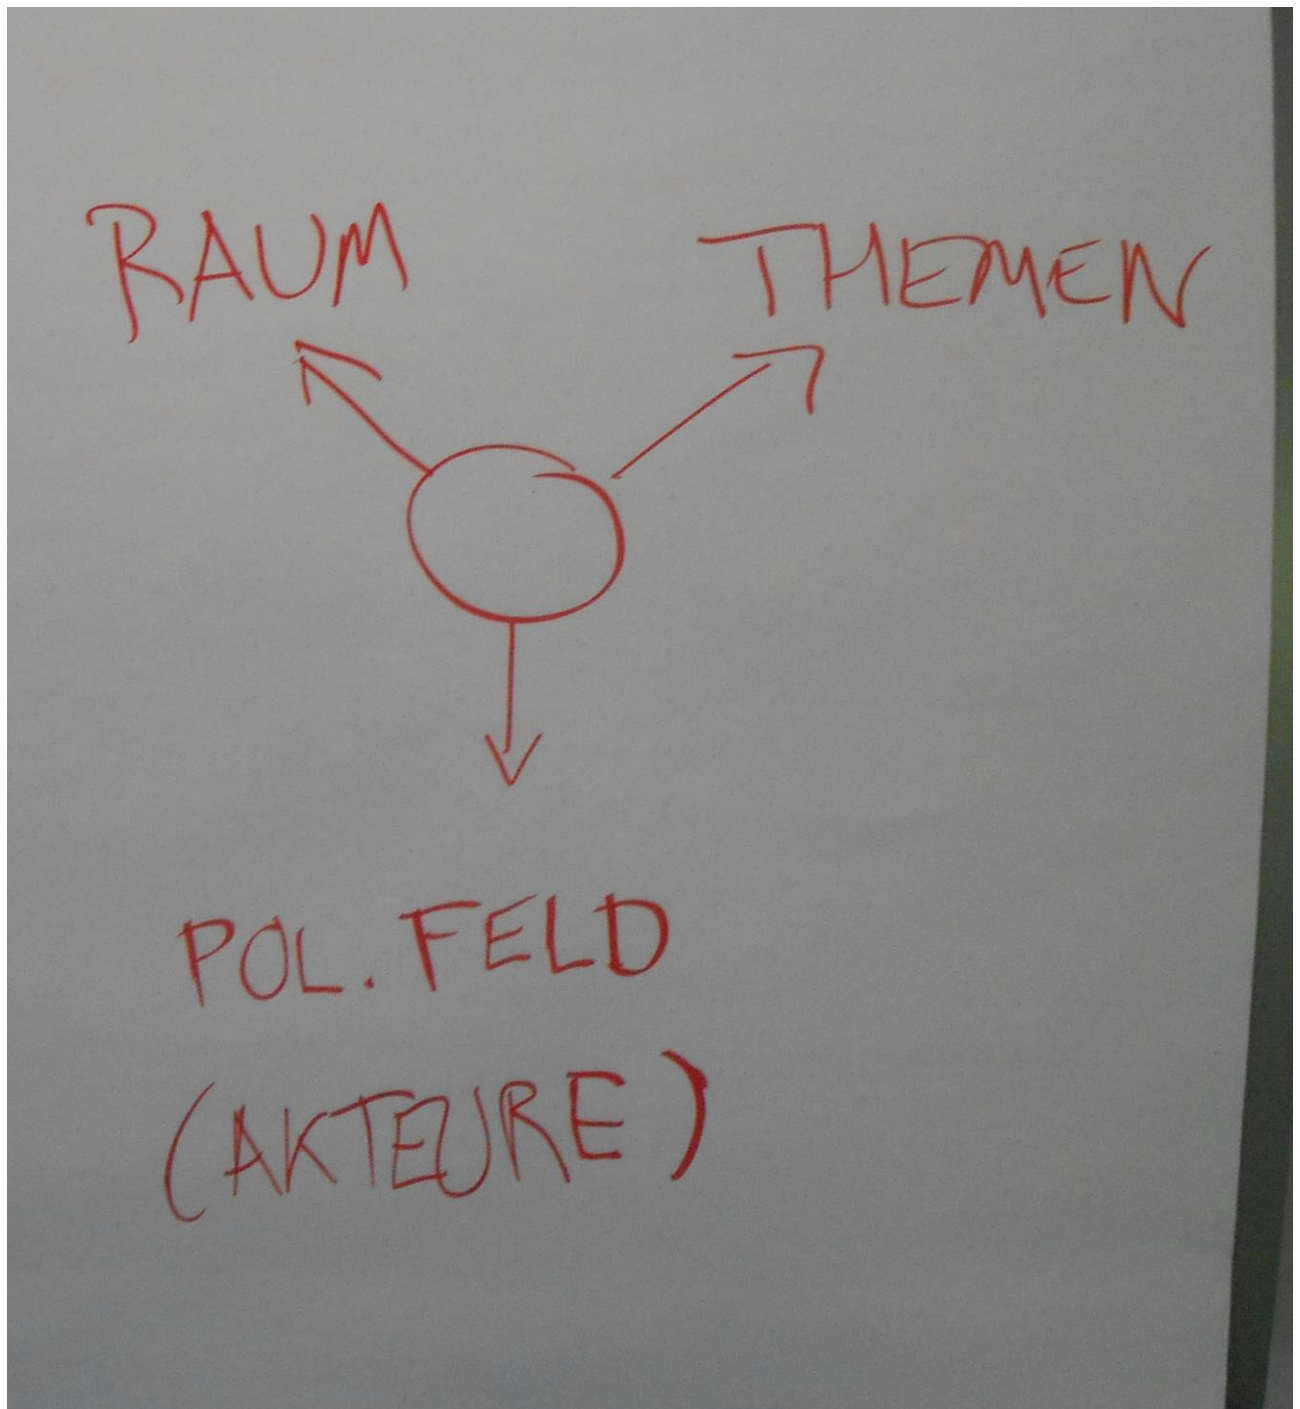 RAUM
THEMEN
POL. FELD
(AKTEURE)